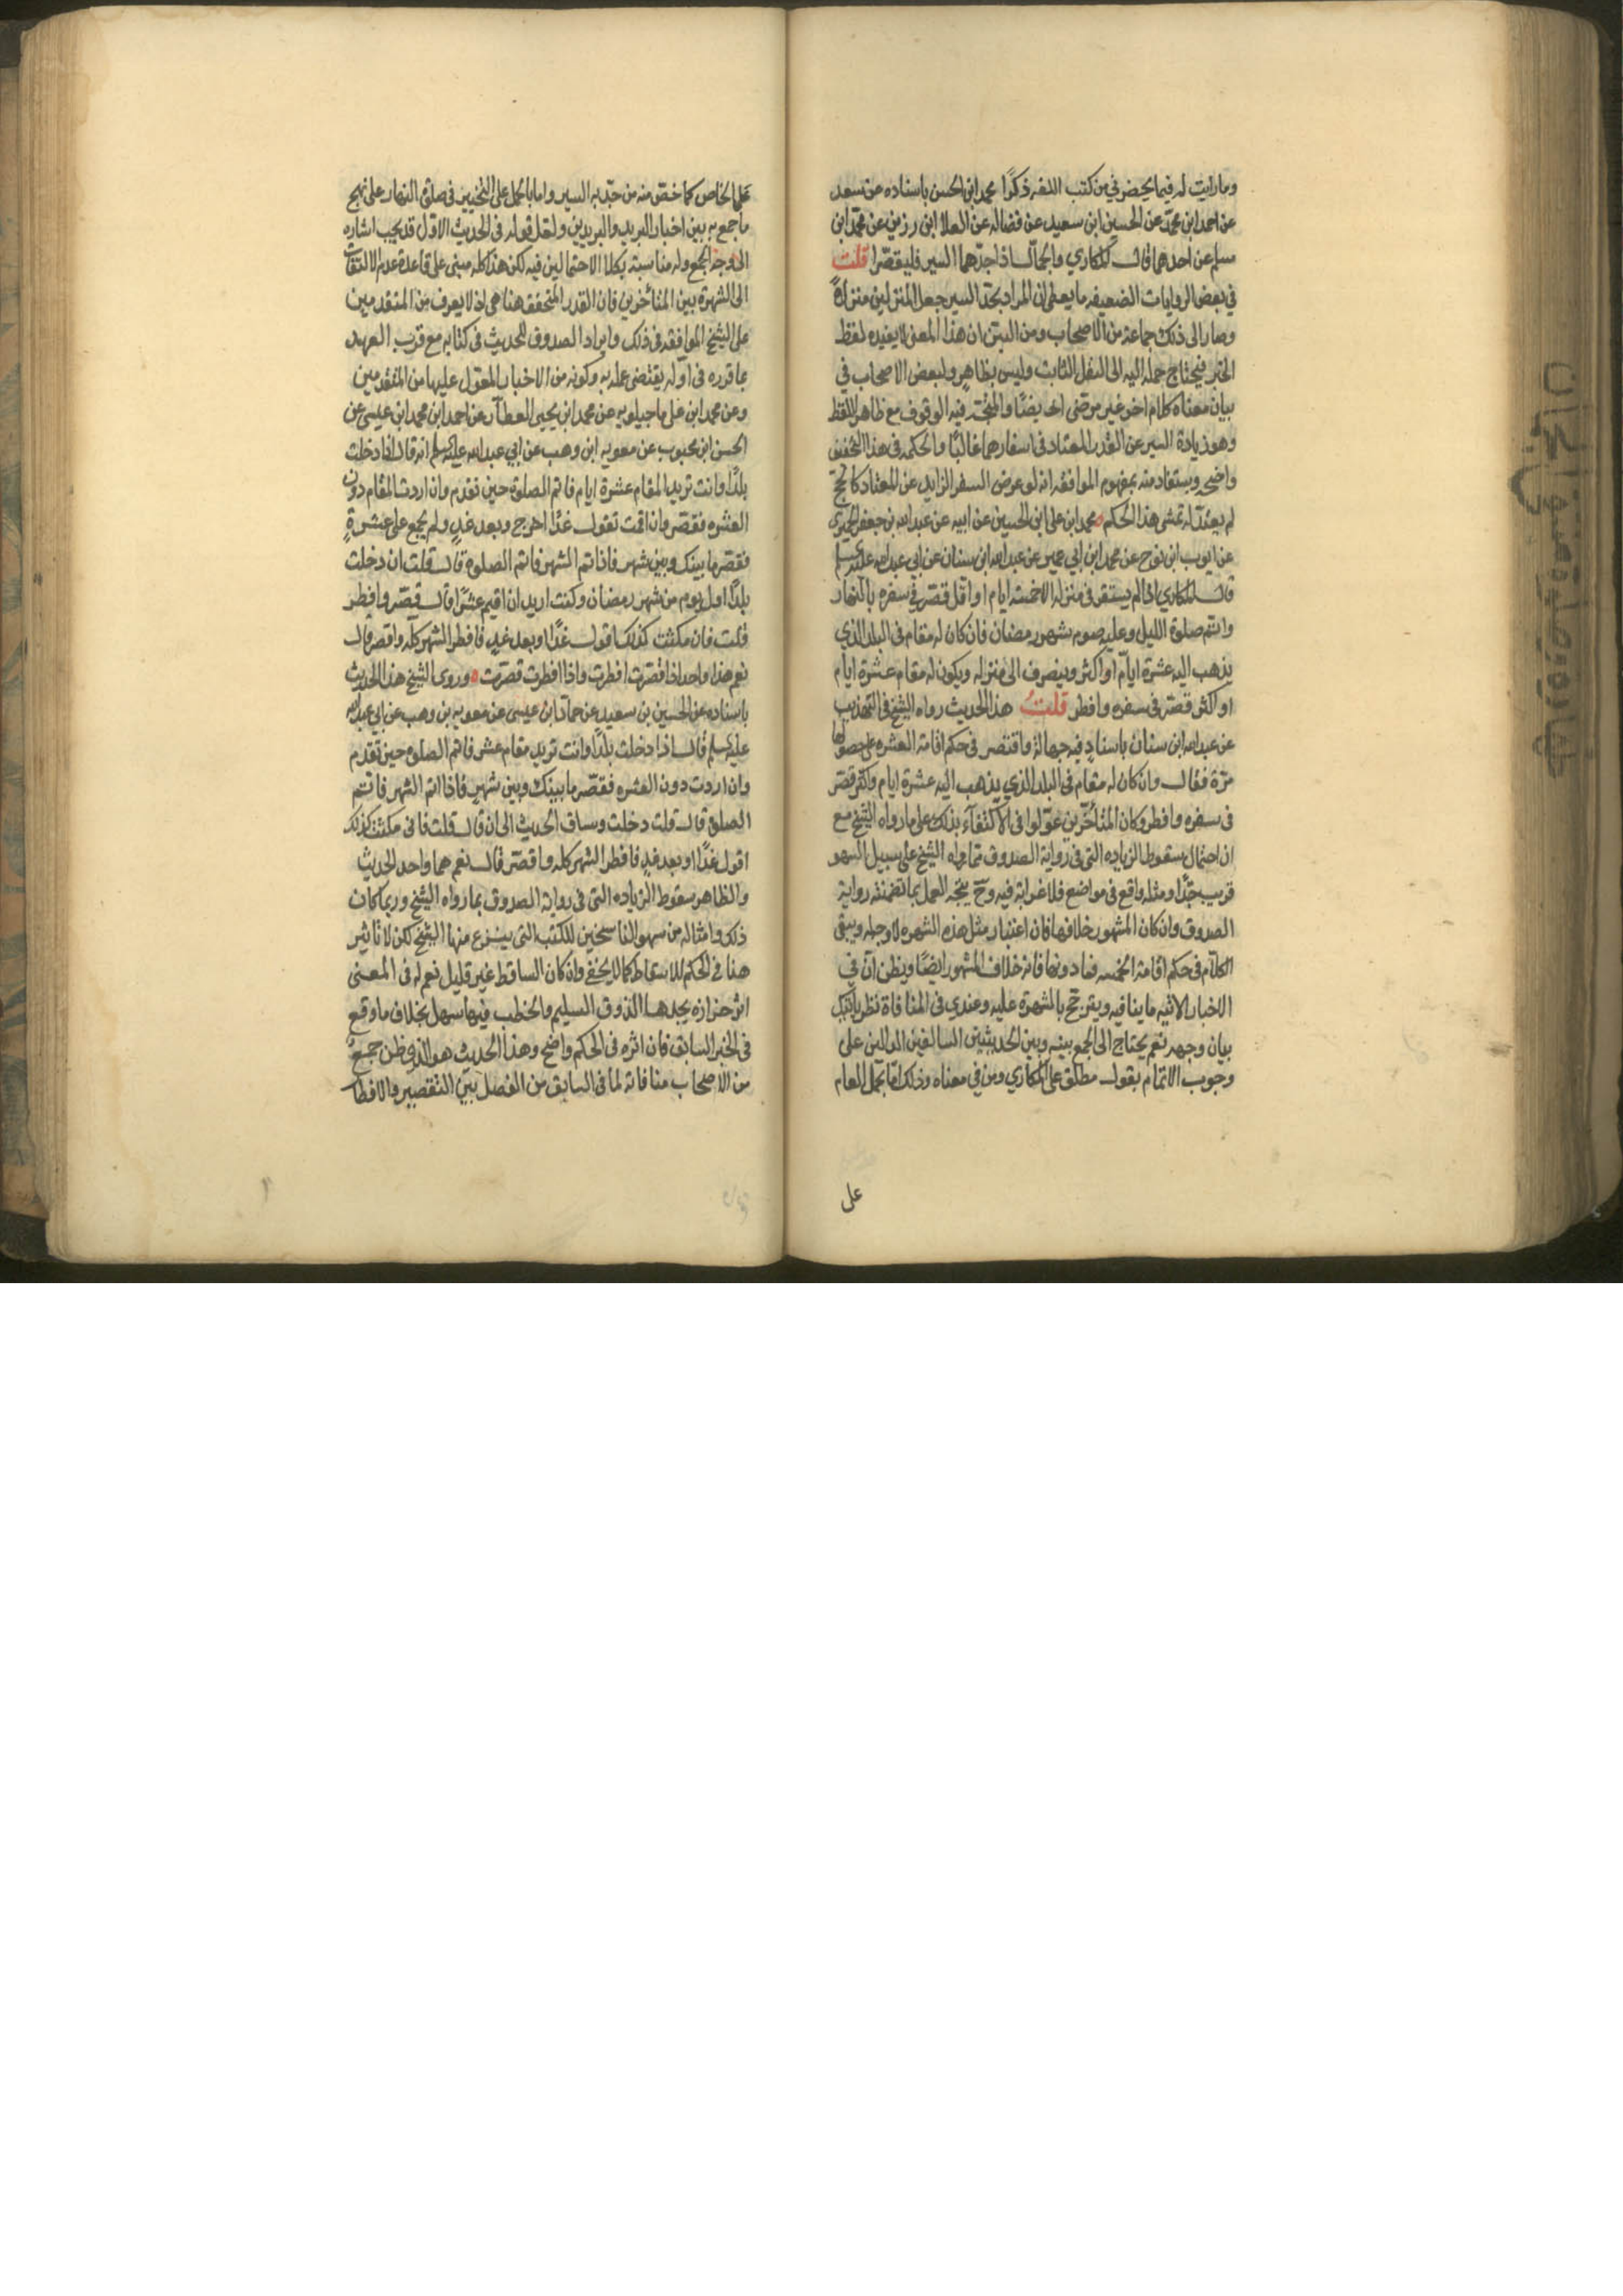 وما رايت له فيما يحضرني من كتب اللغه ذكرًا محمد ابن الحسن باسناده عن سعد
عن احمد ابن محمد عن الحسين ابن سعيد عن فضاله عن العلا ابن رزين عن محمد ابن
مسلم عن احدهما قال المكاري والجمال اذا جد بهما السير فليقصرا قلت
في بعض الروايات الضعيفه ما يعطي ان المراد بجد السير جعل المنزلين منزلاً
وصار الى ذلك جماعة من الاصحاب ومن البين ان هذا المعنى لا يفيده لفظ
الخبر فيحتاج حمله اليه الى النقل الثابت وليس بظاهر ولبعض الاصحاب في
بيان معناه كلام اخر غير مرضى ايضًا والمتجه فيه الوقوف مع ظاهر اللفظ
وهو زيادة السير عن القدر المعتاد في اسفارهما غالبًا والحكمه في هذا التخفيف
واضحه ويستفاد منه بمفهوم الموافقه انه لو عرض السفر الزايد عن المعتاد
لم يعتد له تمشى هذا الحكم محمد ابن علي ابن الحسين عن ابيه عن عبدالله بن جعفر الحميري
عن ايوب ابن نوح عن محمد ابن ابي عمير عن عبدالله ابن سنان عن ابي عبدالله عليه السلم
قال المكاري اذا لم يستقر في منزله الا خمسة ايام او اقل قصر في سفره بالنهار
واتم صلوة الليل وعليه صوم شهر رمضان فان كان له مقام في البلد الذي
يذهب اليه عشرة ايام او اكثر وينصرف الى منزله ويكون له مقام عشرة ايام
او اكثر قصر في سفره وافطر قلت هذا الحديث رواه الشيخ في التهذيب
عن عبدالله ابن سنان باسناد فيه جهالة واقتصر في حكم اقامة العشره على حصولها
مرة فقال وان كان له مقام في البلد الذي يذهب اليه عشرة ايام واكثر قصر
في سفره وافطر وكان المتأخرين عوّلوا في الاكتفآء بذلك على ما رواه الشيخ مع
ان احتمال سقوط الزياده التي في رواية الصدوق مما رواه الشيخ على سبيل السهو
قريب جدًا ومثله واقع في مواضع فلا غرابة فيه وح يتجه العمل بما تضمنته رواية
الصدوق وان كان المشهور خلافها فان اعتبار مثل هذه الشهره لا وجه له ويبقى
الكلام في حكم اقامة الخمسه فما دونها فانه خلاف المشهور ايضًا ويظن ان في
الاخبار الاتيه ما ينافيه ويترجح بالشهرة عليه وعندي في المنافاة نظر ياتيك
بيان وجهه نعم يحتاج الى الجمع بينه وبين الحديثين السالفين الدالين على
وجوب الاتمام بقول مطلق على المكاري ومن في معناه وذلك اما بحمل العام
على
على الخاص كما خص منه من جد به السير واما بالحمل على التخيير في صلوة النهار على نهج
ما جمع به بين اخبار البريد والبريدين ولعل قوله في الحديث الاول قد يجب اشاره
الى وجه الجمع وله مناسبة بكلا الاحتمالين فيه لكن هذا كله مبنى على قاعدة عدم الالتفات
الى الشهرة بين المتأخرين فان القدر المتحقق هنا هي اذ لا يعرف من المتقدمين
على الشيخ الموافقه في ذلك وايراد الصدوق للحديث في كتابه مع قرب العهد
بما قرره في اوله يقتضى عمله به وكونه من الاخبار المعول عليها من المتقدمين
وعن محمد ابن على ماجيلويه عن محمد ابن يحيى العطار عن احمد ابن محمد ابن عيسى عن
الحسن ابن محبوب عن معويه ابن وهب عن ابي عبدالله عليه السلم انه قال اذا دخلت
بلدًا وانت تريد المقام عشرة ايام فاتم الصلوة حين تقدم وان اردت المقام دون
العشره فقصر وان اقمت تقول غدًا اخرج وبعد غدٍ ولم تجمع على عشرةٍ
فقصر ما بينك وبين شهر فاذا تم الشهر فاتم الصلوة قال قلت ان دخلت
بلدًا اول يوم من شهر رمضان وكنت اريد ان اقيم عشرًا قال قصر وافطر
قلت فان مكثت كذلك اقول غدًا او بعد غدٍ فافطر الشهر كله واقصر قال
نعم هذا واحد اذا قصرت افطرت واذا افطرت قصرت وروى الشيخ هذا الحديث
باسناده عن الحسين بن سعيد عن حماد ابن عيسى عن معويه بن وهب عن ابي عبدالله
عليه السلم قال اذا دخلت بلدًا وانت تريد مقام عشر فاتم الصلوه حين تقدم
وان اردت دون العشره فقصر ما بينك وبين شهرٍ فاذا اتم الشهر فاتم
الصلوة قال قلت دخلت وساق الحديث الى ان قال قلت فاني مكثت كذلك
اقول غدًا او بعد غدٍ فافطر الشهر كله واقصر قال نعم هما واحد الحديث
والظاهر سقوط الزياده التي في رواية الصدوق مما رواه الشيخ وربما كان
ذلك وامثاله من سهو الناسخين للكتب التي ينتزع منها الشيخ لكن لا تاثير
هنا في الحكم للاسقاط كما لا يخفى وان كان الساقط غير قليل نعم له في المعنى
اثر حزازه يجدها الذوق السليم والخطب فيها سهل بخلاف ما وقع
في الخبر السابق فان اثره في الحكم واضح وهذا الحديث هو الذي ظن جمعٌ
من الاصحاب منافاته لما في السابق من الفصل بين التقصير والافطار